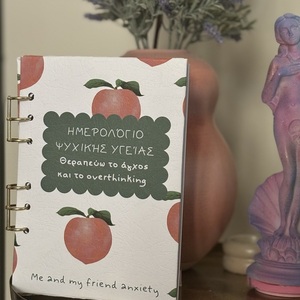 ΗΜΕΡΟΛΟΓΙΟ
ΨΥΧΙΚΗΣ ΥΓΕΙΑΣ
Θεραπεύω το άγχος
και το overthinking
Me and my friend anxiety